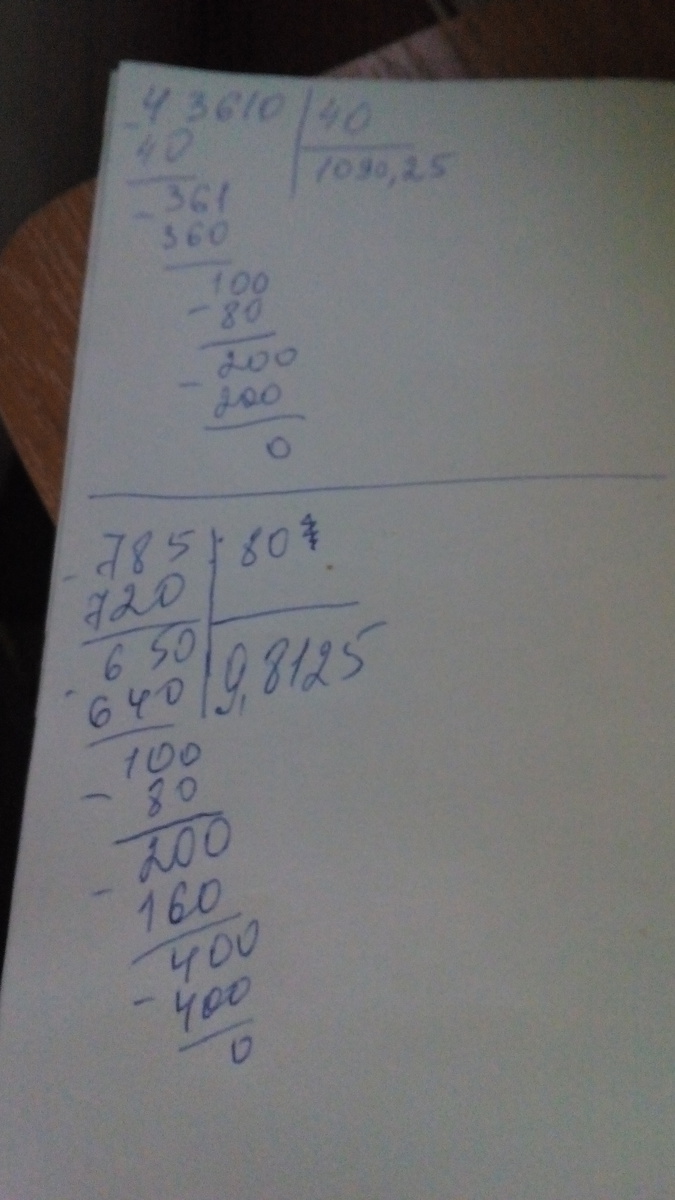 - 43610 | 40
40
1090,25
- 361
360
100
- 80
200
- 200
0
- 785 80
720
650 9,8125
- 640
100
- 80
200
- 160
400
- 400
0